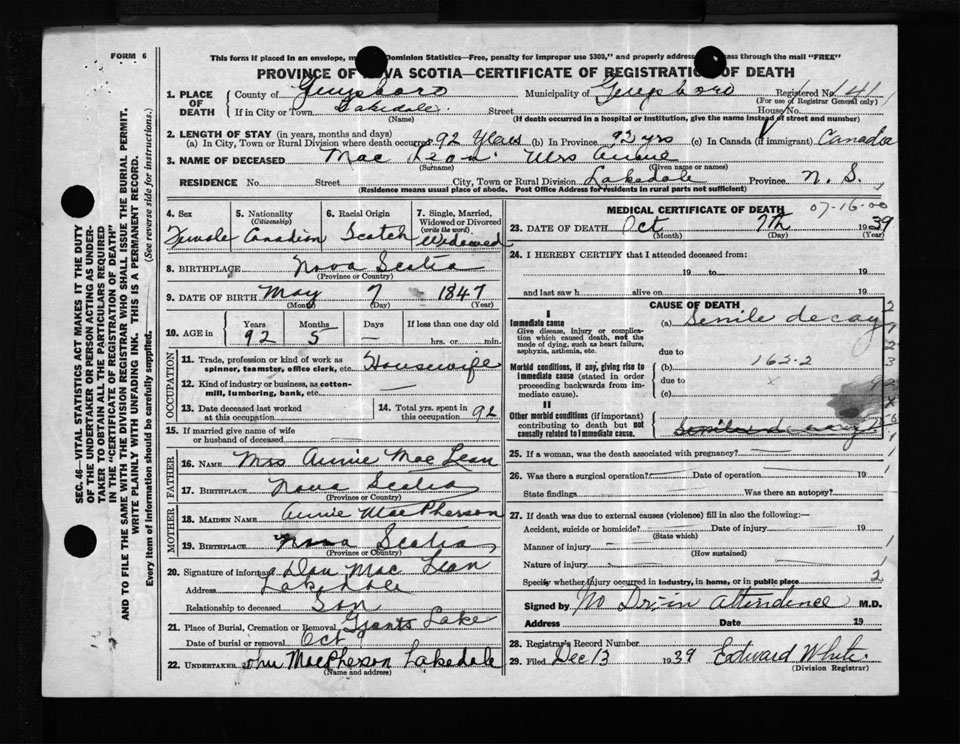 FORM 6
This form if placed in an envelope, Dominion Statistics—Free, penalty for improper use $300," and properly address pass through the mail "FREE"
PROVINCE OF NOVA SCOTIA—CERTIFICATE OF REGISTRATION OF DEATH
1. PLACE OF DEATH County of Guysboro Municipality of Guysboro Registered No. 141
(For use of Registrar General only)
If in City or Town Lakedale Street House No.
(Name) (If death occurred in a hospital or institution, give the name instead of street and number)
2. LENGTH OF STAY (in years, months and days)
(a) In City, Town or Rural Division where death occurred 92 Years (b) In Province 92 yrs (c) In Canada (if immigrant) Canada
3. NAME OF DECEASED Mac Lean Mrs Annie
(Surname) (Given name or names)
RESIDENCE No. Street City, Town or Rural Division Lakedale Province N. S.
(Residence means usual place of abode. Post Office Address for residents in rural parts not sufficient)
4. Sex Female
5. Nationality (Citizenship) Canadian
6. Racial Origin Scotch
7. Single, Married, Widowed or Divorced (write the word) Widowed
8. BIRTHPLACE Nova Scotia
(Province or Country)
9. DATE OF BIRTH May 7 1847
(Month) (Day) (Year)
10. AGE in Years 92 Months 5 Days — If less than one day old
hrs. or min.
OCCUPATION
11. Trade, profession or kind of work as spinner, teamster, office clerk, etc. Housewife
12. Kind of industry or business, as cotton-mill, lumbering, bank, etc
13. Date deceased last worked at this occupation
14. Total yrs. spent in this occupation 92
15. If married give name of wife or husband of deceased
FATHER
16. NAME Mrs Annie Mac Lean
17. BIRTHPLACE Nova Scotia
(Province or Country)
MOTHER
18. MAIDEN NAME Annie MacPherson
19. BIRTHPLACE Nova Scotia
(Province or Country)
20. Signature of informant Dan Mac Lean
Address Lakedale
Relationship to deceased Son
21. Place of Burial, Cremation or Removal Grants Lake
Date of burial or removal Oct
22. UNDERTAKER John MacPherson Lakedale
(Name and address)
MEDICAL CERTIFICATE OF DEATH 07-16-00
23. DATE OF DEATH Oct 7th 1939
(Month) (Day) (Year)
24. I HEREBY CERTIFY that I attended deceased from:
19 to 19
and last saw h alive on 19
CAUSE OF DEATH
I
Immediate cause (a) Senile decay
Give disease, injury or complication which caused death, not the mode of dying, such as heart failure, asphyxia, asthenia, etc.
due to
Morbid conditions, if any, giving rise to immediate cause (stated in order proceeding backwards from immediate cause).
(b) 162-2
due to
(c)
II
Other morbid conditions (if important) contributing to death but not causally related to immediate cause.
25. If a woman, was the death associated with pregnancy?
26. Was there a surgical operation? Date of operation 19
State findings Was there an autopsy?
27. If death was due to external causes (violence) fill in also the following:—
Accident, suicide or homicide? Date of injury 19
(State which)
Manner of injury
(How sustained)
Nature of injury
Specify whether injury occurred in industry, in home, or in public place 2
Signed by No Dr. in Attendence M.D.
Address Date 19
28. Registrar's Record Number
29. Filed Dec 13 1939 Edward White
(Division Registrar)
SEC. 46—VITAL STATISTICS ACT MAKES IT THE DUTY
OF THE UNDERTAKER OR PERSON ACTING AS UNDER-
TAKER TO OBTAIN ALL THE PARTICULARS REQUIRED
IN THE "CERTIFICATE OF REGISTRATION OF DEATH"
AND TO FILE THE SAME WITH THE DIVISION REGISTRAR WHO SHALL ISSUE THE BURIAL PERMIT.
WRITE PLAINLY WITH UNFADING INK. THIS IS A PERMANENT RECORD.
Every item of information should be carefully supplied. (See reverse side for instructions.)